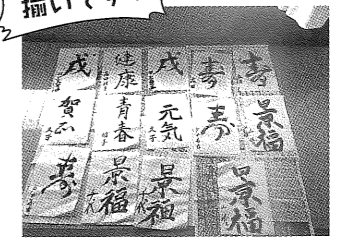 揃いです
戌
健康
戌
寿
寿
賀正
青春
元気
寿
景福
寿
景福
景福
景福